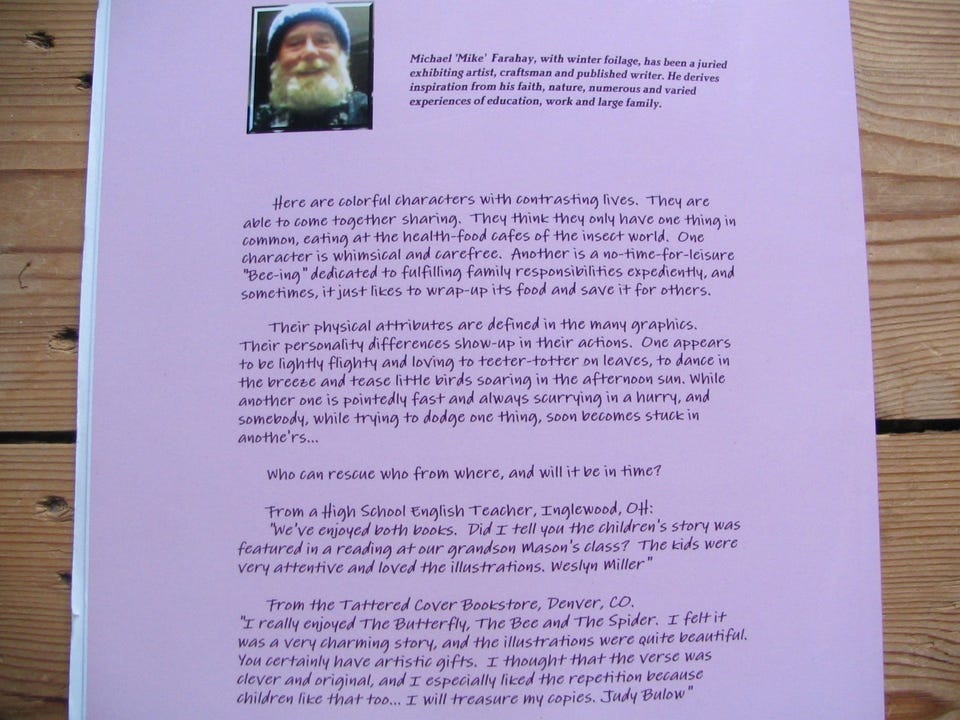 Michael 'Mike' Farahay, with winter foilage, has been a juried
exhibiting artist, craftsman and published writer. He derives
inspiration from his faith, nature, numerous and varied
experiences of education, work and large family.
Here are colorful characters with contrasting lives. They are
able to come together sharing. They think they only have one thing in
common, eating at the health-food cafes of the insect world. One
character is whimsical and carefree. Another is a no-time-for-leisure
"Bee-ing" dedicated to fulfilling family responsibilities expediently, and
sometimes, it just likes to wrap-up its food and save it for others.
Their physical attributes are defined in the many graphics.
Their personality differences show-up in their actions. One appears
to be lightly flighty and loving to teeter-totter on leaves, to dance in
the breeze and tease little birds soaring in the afternoon sun. While
another one is pointedly fast and always scurrying in a hurry, and
somebody, while trying to dodge one thing, soon becomes stuck in
anothe'rs...
Who can rescue who from where, and will it be in time?
From a High School English Teacher, Inglewood, OH:
"We've enjoyed both books. Did I tell you the children's story was
featured in a reading at our grandson Mason's class? The kids were
very attentive and loved the illustrations. Weslyn Miller"
From the Tattered Cover Bookstore, Denver, CO.
"I really enjoyed The Butterfly, The Bee and The Spider. I felt it
was a very charming story, and the illustrations were quite beautiful.
You certainly have artistic gifts. I thought that the verse was
clever and original, and I especially liked the repetition because
children like that too... I will treasure my copies. Judy Bulow"